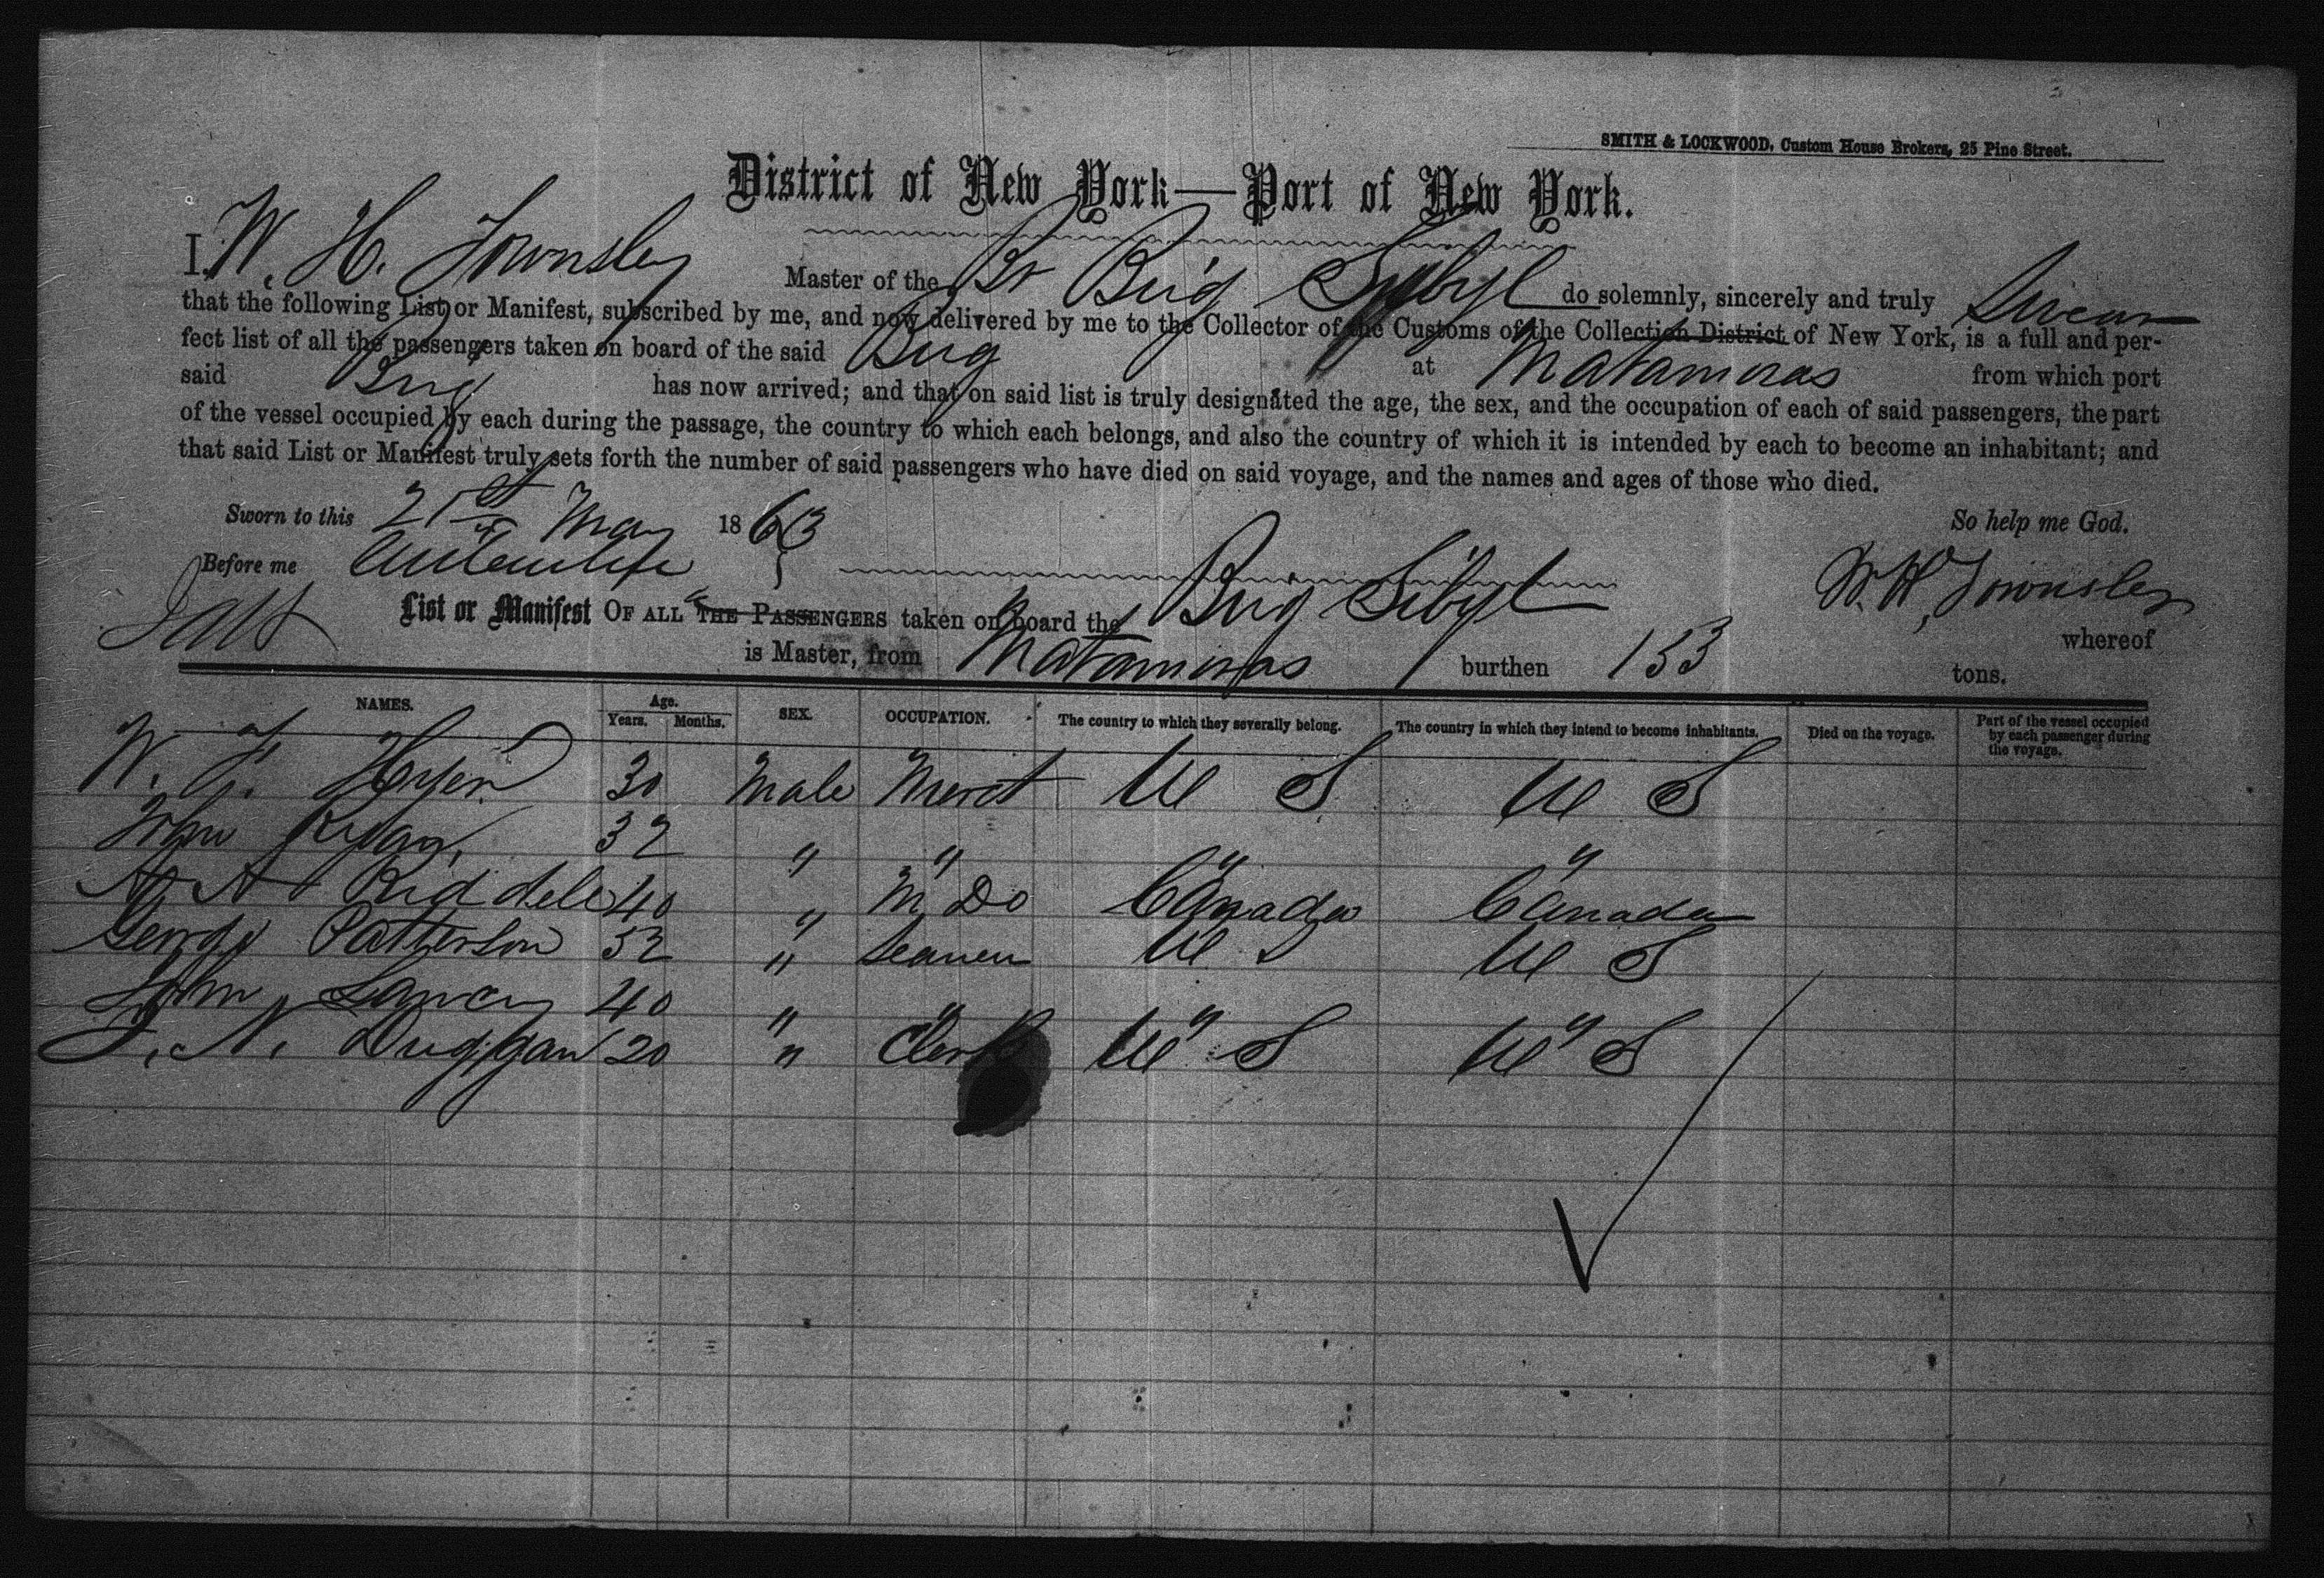 SMITH & LOCKWOOD, Custom House Brokers, 25 Pine Street.
District of New York—Port of New York.
I, W. H. Townsley Master of the Br Brig Sybyl do solemnly, sincerely and truly Swear
that the following List or Manifest, subscribed by me, and now delivered by me to the Collector of the Customs of the Collection District of New York, is a full and per-
fect list of all the passengers taken on board of the said Brig at Matamoras from which port
said Brig has now arrived; and that on said list is truly designated the age, the sex, and the occupation of each of said passengers, the part
of the vessel occupied by each during the passage, the country to which each belongs, and also the country of which it is intended by each to become an inhabitant; and
that said List or Manifest truly sets forth the number of said passengers who have died on said voyage, and the names and ages of those who died.
Sworn to this 21st May 1863 So help me God.
Before me W. H. Townsley
List or Manifest OF ALL THE PASSENGERS taken on board the Brig Sibyl whereof
is Master, from Matamoras burthen 153 tons.
NAMES. Age. Years. Months. SEX. OCCUPATION. The country to which they severally belong. The country in which they intend to become inhabitants. Died on the voyage. Part of the vessel occupied by each passenger during the voyage.
W. F. 30 Male Merct U S U S
John Ryan 32 " " " "
A Riddell 40 " M Do Canada Canada
George Patterson 52 " Seamen U S U S
John Lancy 40 " " " "
J. N. Duggan 20 " Clerk U S U S